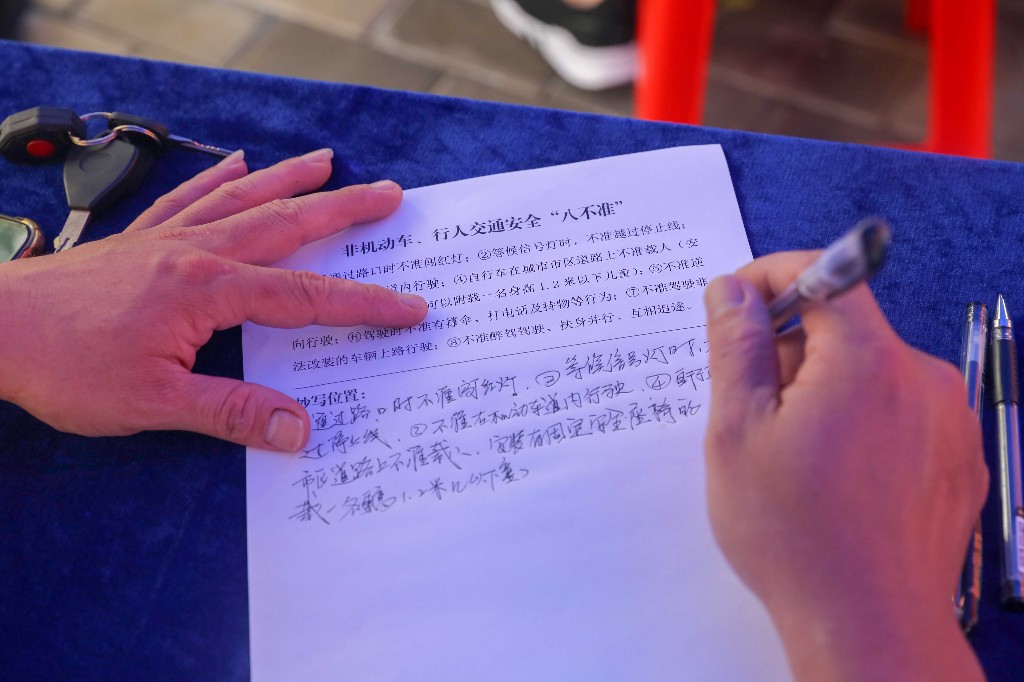 非机动车、行人交通安全“八不准”
通过路口时不准闯红灯；②等候信号灯时，不准越过停止线；
道内行驶；④自行车在城市市区道路上不准载人（安
可以附载一名身高1.2米以下儿童）；⑤不准逆
向行驶；⑥驾驶时不准有撑伞、打电话及持物等行为；⑦不准驾驶非
法改装的车辆上路行驶；⑧不准醉驾驾驶、扶身并行、互相追逐。
抄写位置：
通过路口时不准闯红灯．③等候信号灯时，
过停止线．②不准在机动车道内行驶．④自行
市区道路上不准载人，安装有固定安全座椅的
载一名 1.2米